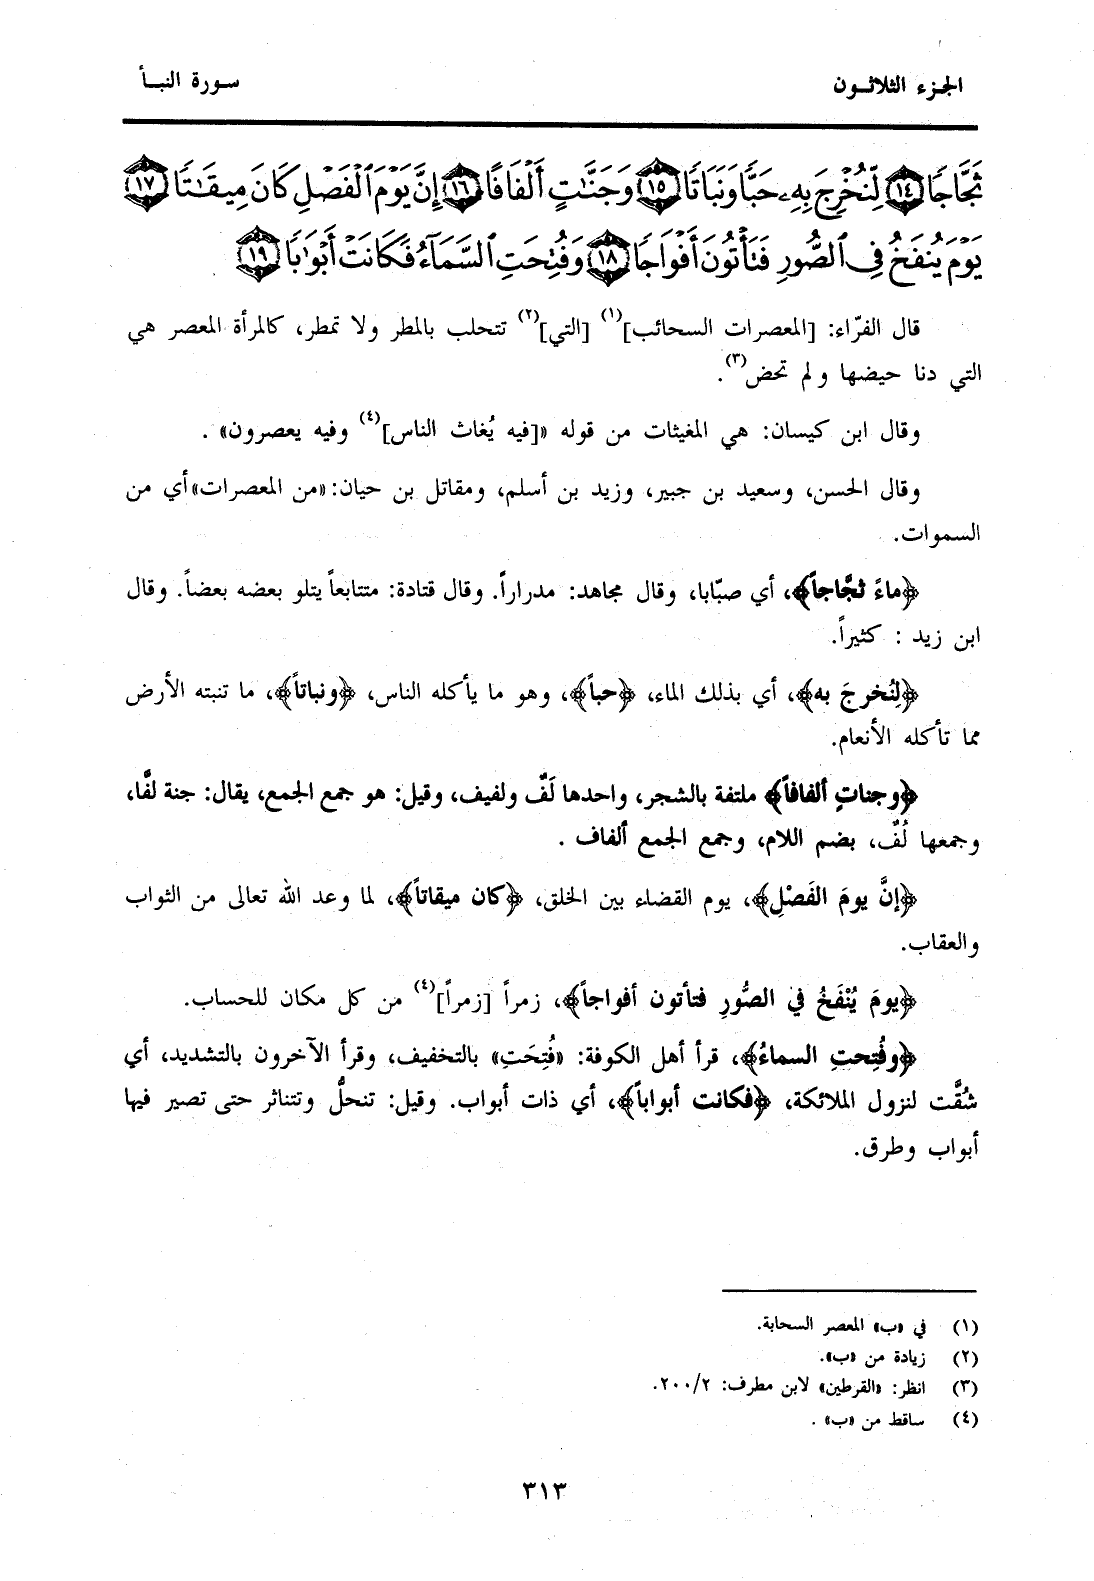 الجزء الثلاثون
سورة النبأ
ثَجَّاجًا ﴿١٤﴾ لِّنُخْرِجَ بِهِۦ حَبًّا وَنَبَاتًا ﴿١٥﴾ وَجَنَّٰتٍ أَلْفَافًا ﴿١٦﴾ إِنَّ يَوْمَ ٱلْفَصْلِ كَانَ مِيقَٰتًا ﴿١٧﴾
يَوْمَ يُنفَخُ فِى ٱلصُّورِ فَتَأْتُونَ أَفْوَاجًا ﴿١٨﴾ وَفُتِحَتِ ٱلسَّمَآءُ فَكَانَتْ أَبْوَٰبًا ﴿١٩﴾
قال الفرّاء: [المعصرات السحائب](١) [التي](٢) تتحلب بالمطر ولا تمطر، كالمرأة المعصر هي
التي دنا حيضها ولم تحض(٣).
وقال ابن كيسان: هي المغيثات من قوله «[فيه يُغاث الناس](٤) وفيه يعصرون» .
وقال الحسن، وسعيد بن جبير، وزيد بن أسلم، ومقاتل بن حيان: «من المعصرات» أي من
السموات.
﴿ماءً ثجَّاجاً﴾، أي صبّابا، وقال مجاهد: مدراراً. وقال قتادة: متتابعاً يتلو بعضه بعضاً. وقال
ابن زيد : كثيراً.
﴿لِنُخرجَ به﴾، أي بذلك الماء، ﴿حباً﴾، وهو ما يأكله الناس، ﴿ونباتاً﴾، ما تنبته الأرض
مما تأكله الأنعام.
﴿وجناتٍ ألفافاً﴾ ملتفة بالشجر، واحدها لَفٌ ولفيف، وقيل: هو جمع الجمع، يقال: جنة لفَّا،
وجمعها لُفٌ، بضم اللام، وجمع الجمع ألفاف .
﴿إنَّ يومَ الفَصْلِ﴾، يوم القضاء بين الخلق، ﴿كان ميقاتاً﴾، لما وعد الله تعالى من الثواب
والعقاب.
﴿يومَ يُنْفَخُ في الصُّورِ فتأتون أفواجاً﴾، زمراً [زمراً](٤) من كل مكان للحساب.
﴿وفُتِحتِ السماءُ﴾، قرأ أهل الكوفة: «فُتِحَتِ» بالتخفيف، وقرأ الآخرون بالتشديد، أي
شُقَّت لنزول الملائكة، ﴿فكانت أبواباً﴾، أي ذات أبواب. وقيل: تنحلُّ وتتناثر حتى تصير فيها
أبواب وطرق.
(١) في «ب» المعصر السحابة.
(٢) زيادة من «ب».
(٣) انظر: «القرطين» لابن مطرف: ٢٠٠/٢.
(٤) ساقط من «ب» .
٣١٣